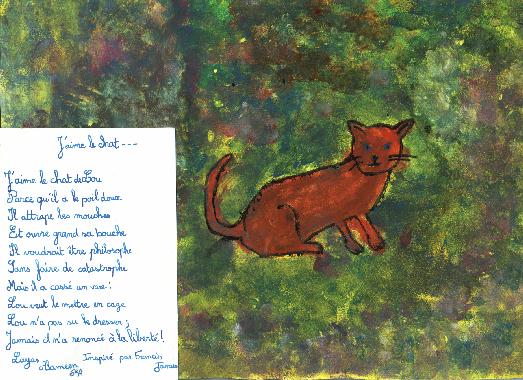 J'aime le chat ---
J'aime le chat de Lou
Parce qu'il a le poil doux
Il attrape les mouches
Et ouvre grand sa bouche
Il voudrait être philosophe
Sans faire de catastrophe
Mais il a cassé un vase !
Lou veut le mettre en cage
Lou n'a pas su le dresser ;
Jamais il n'a renoncé à la liberté !
Inspiré par Francis
James